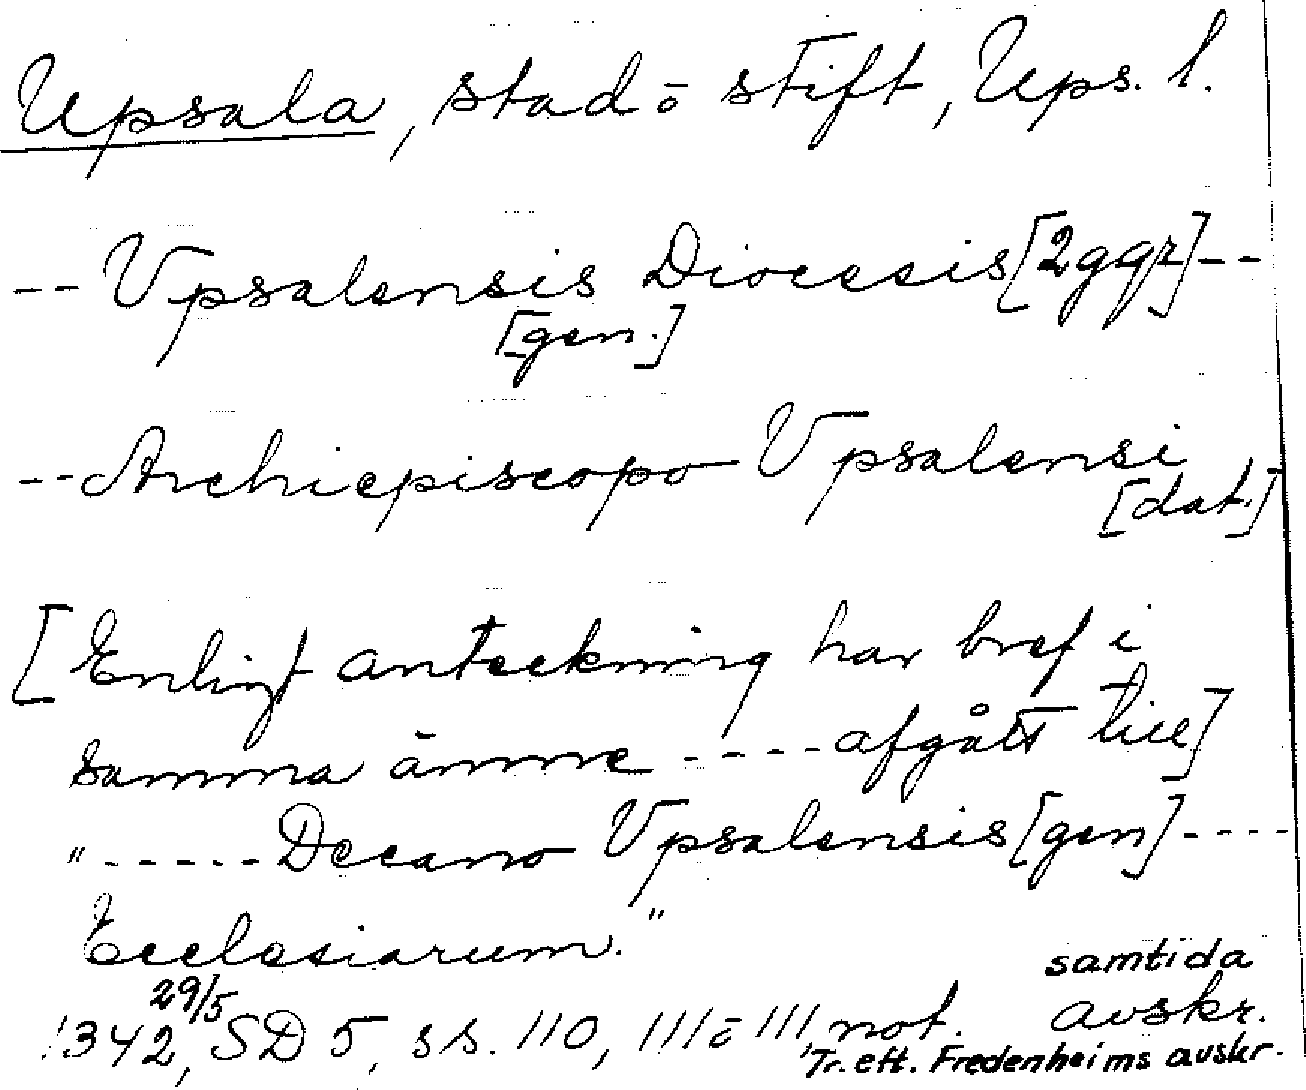 Upsala, stad ō stift, Ups. l.
-- Vpsalensis Diocesis [2 ggr] --
[gen.]
-- Archiepiscopo Vpsalensi
[dat.]
[Enligt anteckning har bref i
samma ämne ---- afgått till]
"----- Decano Vpsalensis [gen] ----
Ecclesiarum."
samtida
29/5
1342, SD 5, s.s. 110, 111 ō 111 not. avskr.
Tr. eft. Fredenheims avskr.